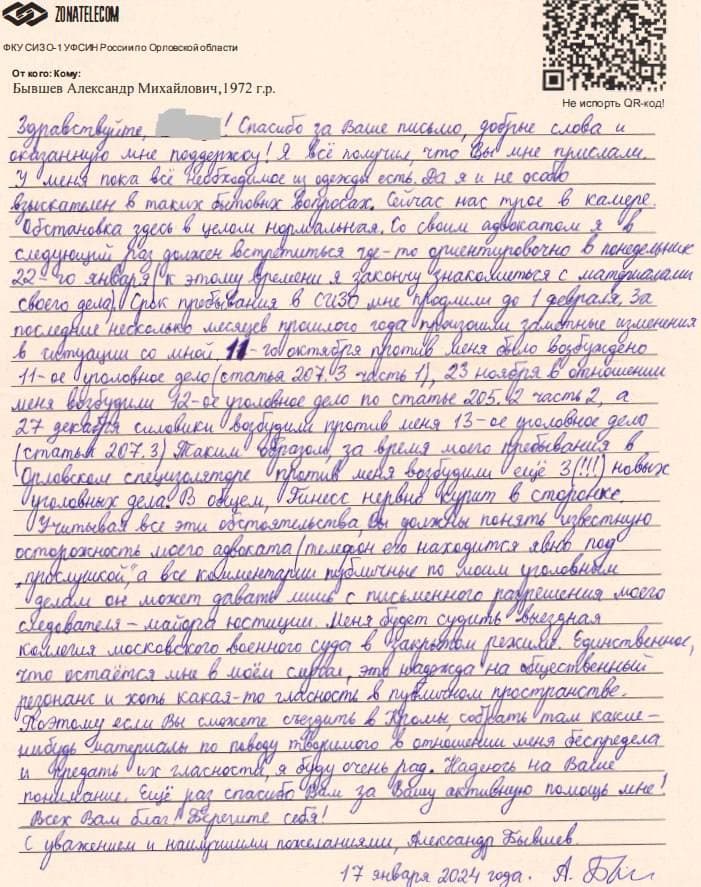 ZONATELECOM
ФКУ СИЗО-1 УФСИН России по Орловской области
От кого: Кому:
Бывшев Александр Михайлович,1972 г.р.
Не испорть QR-код!
Здравствуйте, ! Спасибо за Ваше письмо, добрые слова и
оказанную мне поддержку! Я всё получил, что Вы мне прислали.
У меня пока всё необходимое из одежды есть. Да я и не особо
взыскателен в таких бытовых вопросах. Сейчас нас трое в камере.
Обстановка здесь в целом нормальная. Со своим адвокатом я в
следующий раз должен встретиться где-то ориентировочно в понедельник
22-го января (к этому времени я закончу знакомиться с материалами
своего дела). Срок пребывания в СИЗО мне продлили до 1 февраля. За
последние несколько месяцев прошлого года произошли заметные изменения
в ситуации со мной. 11-го октября против меня было возбуждено
11-ое уголовное дело (статья 207.3 часть 1), 23 ноября в отношении
меня возбудили 12-ое уголовное дело по статье 205.2 часть 2, а
27 декабря силовики возбудили против меня 13-ое уголовное дело
(статья 207.3) Таким образом, за время моего пребывания в
Орловском специзоляторе против меня возбудили ещё 3(!!!) новых
уголовных дела. В общем, Гинесс нервно курит в сторонке.
Учитывая все эти обстоятельства, Вы должны понять известную
осторожность моего адвоката (телефон его находится явно под
„прослушкой", а все комментарии публичные по моим уголовным
делам он может давать лишь с письменного разрешения моего
следователя – майора юстиции. Меня будет судить выездная
коллегия московского военного суда в закрытом режиме. Единственное,
что остаётся мне в моём случае, это надежда на общественный
резонанс и хоть какая-то гласность в публичном пространстве.
Поэтому если Вы сможете съездить в Кромы, собрать там какие-
нибудь материалы по поводу творимого в отношении меня беспредела
и предать их гласности, я буду очень рад. Надеюсь на Ваше
понимание. Ещё раз спасибо Вам за Вашу активную помощь мне!
Всех Вам благ! Берегите себя!
С уважением и наилучшими пожеланиями, Александр Бывшев.
17 января 2024 года. А.